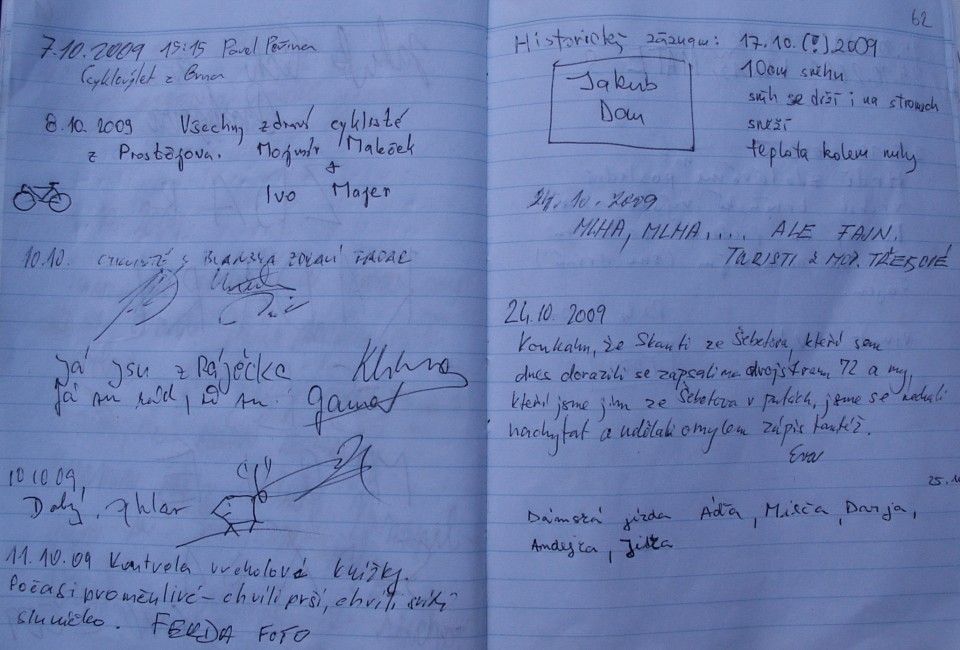 7.10.2009 15:15 Pavel Peřina
Cyklovýlet z Brna
8.10.2009 Všechny zdraví cyklisté
z Prostějova. Mojmír Maleček
+
Ivo Majer
10.10. CYKLISTÉ Z BLANSKA ZDRAVÍ
Já jsu z Rájéčka
Já su rád,
10 10 09,
11.10.09 Kontrola vrcholové knížky.
Počasí proměnlivé – chvíli prší, chvíli svítí
sluníčko. FERDA FOTO
62
Historický záznam: 17.10.(!) 2009
Jakub
Dom
10cm sněhu
sníh se drží i na stromech
sněží
teplota kolem nuly
24.10.2009
MLHA, MLHA.... ALE FAJN.
TURISTI Z MOR. TŘEBOVÉ
24.10 2009
Koukám, že Skauti ze Šebetova, kteří sem
dnes dorazili se zapsali na dvojstranu 72 a my,
kteří jsme jim ze Šebetova v patách, jsme se nechali
nachytat a udělali omylem zápis tamtéž.
Eva
25.
Dámská jízda Áďa, Míšča, Darja,
Andejka, Jiťka